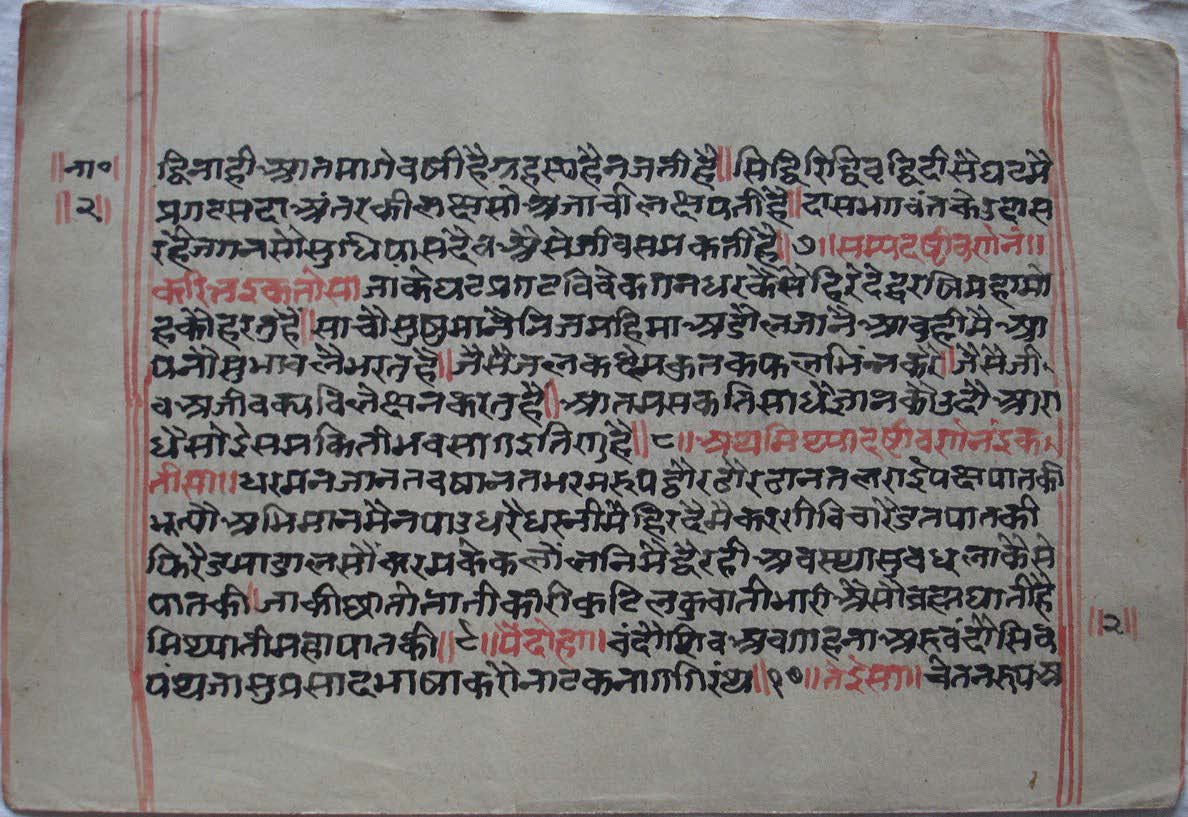 ॥ना०॥
॥२॥
द्धिनाही आतमागेवषीहैगृहस्थहैनजतीहै॥सिद्धिरिद्धिवृद्धिदीसैघटमै
प्रगटसदा अंतरकीलक्षसो अजाचीलक्षपतीहै॥दासभगवंतकेउदास
रहैजगतसौसुषियासदैव अैसेजीवसमकतीहै॥७॥सम्यदृष्टीवर्णनं॥
कवित्तइकतीसा जाकेघटप्रगटविवेकगनधरकैसेहिरदेहरषिमहामो
हकौहरतुहै॥साचौसुषमानैनिजमहिमा अडौलजानै आपुहीमै आ
पनोसुभावलैभरतहै॥जैसैजलकर्दमकुतकफलभिंनकरै॥जैसैजी
व अजीवकयविलेक्षनकरतुहै॥ आतमसकतिसाधैज्ञानकोउदौ आरा
धैसोईसमकितीभवसागइतिरतुहै॥८॥अथमिथ्यादृष्टीवर्णनंइक
तीसा॥धरमनजानतवषानतभरमरुपठौरठौरठानतलराईपक्षपातकी
भूल्यौ अभिमानमैनपाउधरैधरनीमैहिरदेमैकरणीविचारैउतपातकी
फिरैडामाडालसौकरमकेकलोलनिमैह्वैरही अवस्थासुबधुलाकैसे
पातकी॥जाकीछातीतातीकारीकुटिलकुवातीभारी अैसोब्रह्मघातीहै
मिथ्यातीमहापातकी॥९॥दोहा॥वंदौंशिव अवगाहना अरुवंदौसिव
पंथजासुप्रसादभाषाकरोनाटकनागगिरंथ॥१०॥तेईसा॥चेतनरुप अ
॥२॥